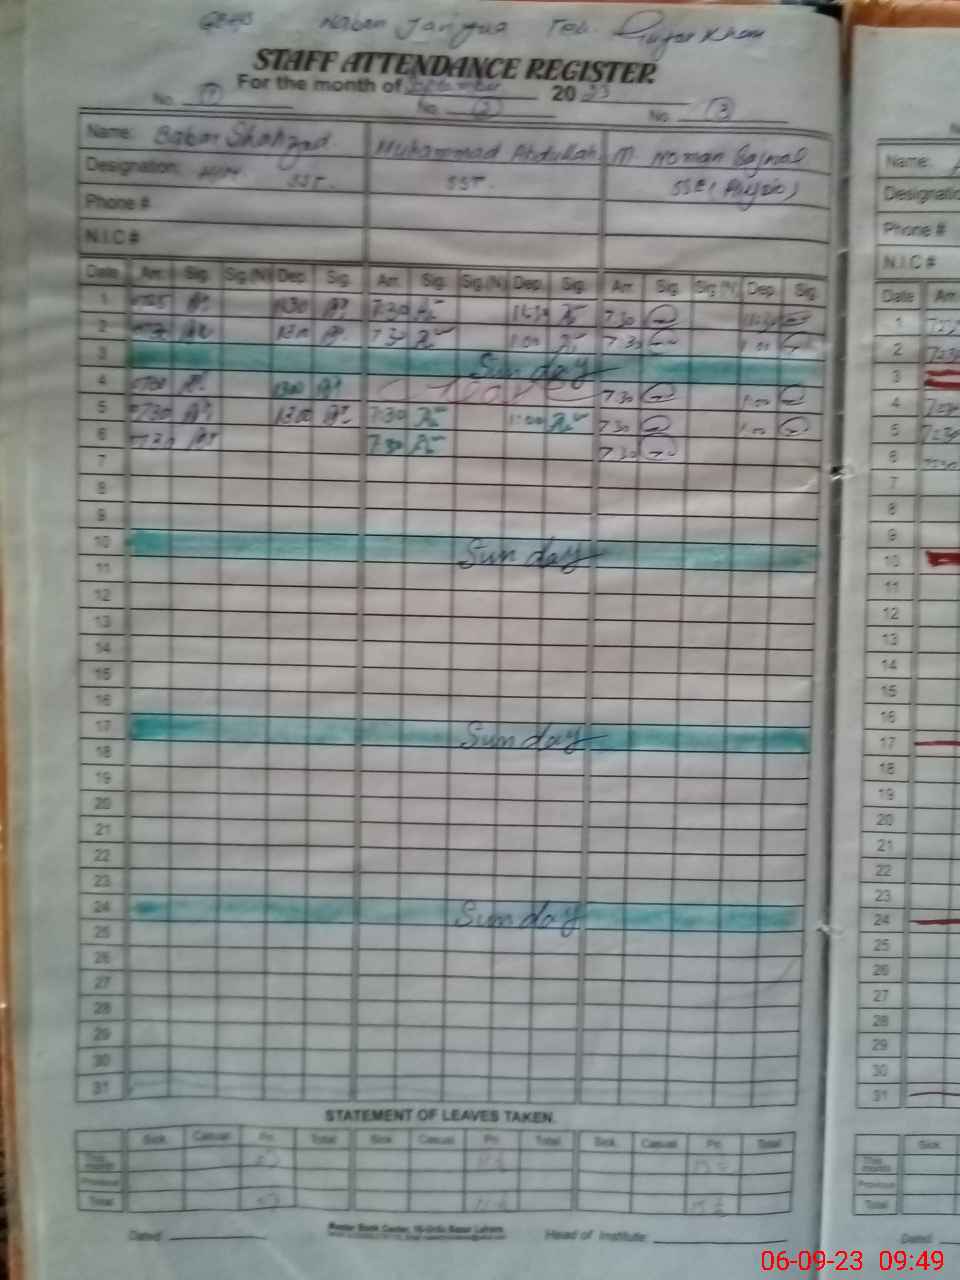 GBHS Naban Janjua Teh. Gujar Khan
STAFF ATTENDANCE REGISTER
For the month of September 2023
No. 1 No. 2 No. 3
Name: Babar Shahzad Muhammad Abdullah M. Noman
Designation: SST. SST. SSE (Physic)
Phone #
N.I.C #
Date Arr. Sig. Sig.(N) Dep. Sig. Arr. Sig. Sig.(N) Dep. Sig. Arr. Sig. Sig.(N) Dep. Sig.
1 1130 7:30 11:30 7:30 11:30
2 1300 7:30 1:00 7:30 1:00
3 Sunday
4 0730 1300 7:30 1:00
5 0730 1300 7:30 1:00 7:30 1:00
6 0730 7:30 7:30
7
8
9
10 Sunday
11
12
13
14
15
16
17 Sunday
18
19
20
21
22
23
24 Sunday
25
26
27
28
29
30
31
STATEMENT OF LEAVES TAKEN.
Sick Casual Pri. Total Sick Casual Pri. Total Sick Casual Pri. Total
This month
Previous
Total
Dated Head of Institute
Name:
Designatio
Phone #
N.I.C #
Date Arr
1
2
3
4
5
6
7
8
9
10
11
12
13
14
15
16
17
18
19
20
21
22
23
24
25
26
27
28
29
30
31
Sick
This month
Previous
Total
Dated
06-09-23 09:49